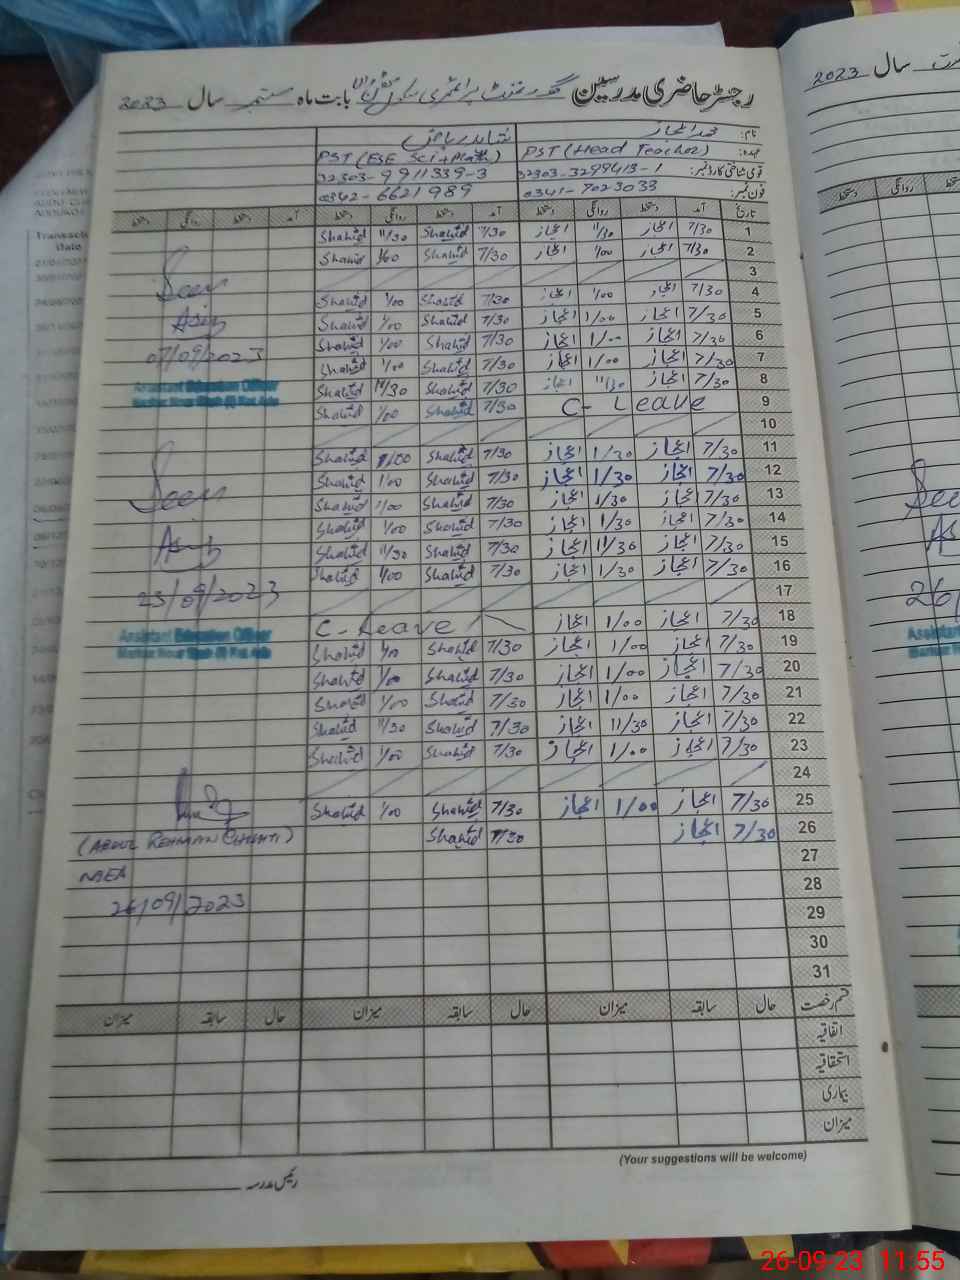 رجسٹر حاضری مدرسین گورنمنٹ پرائمری بابت ماہ ستمبر سال 2023
نام: محمد اعجاز شاہد
عہدہ: PST (Head Teacher) PST (ESE Sci+Math)
قومی شناختی کارڈ نمبر: 32303-3299413-1 32303-9911339-3
فون نمبر: 0341-7023033 0342-6621989
تاریخ آمد دستخط روانگی دستخط آمد دستخط روانگی دستخط آمد دستخط روانگی دستخط
1 7/30 اعجاز 11/30 اعجاز 7/30 Shahid 11/30 Shahid
2 7/30 اعجاز 1/00 اعجاز 7/30 Shahid 1/00 Shahid
3
4 7/30 اعجاز 1/00 اعجاز 7/30 Shahid 1/00 Shahid
5 7/30 اعجاز 1/00 اعجاز 7/30 Shahid 1/00 Shahid
6 7/30 اعجاز 1/00 اعجاز 7/30 Shahid 1/00 Shahid
7 7/30 اعجاز 1/00 اعجاز 7/30 Shahid 1/00 Shahid
8 7/30 اعجاز 11/30 اعجاز 7/30 Shahid 11/30 Shahid
9 C- Leave 7/30 Shahid 1/00 Shahid
10
11 7/30 اعجاز 1/30 اعجاز 7/30 Shahid 1/00 Shahid
12 7/30 اعجاز 1/30 اعجاز 7/30 Shahid 1/00 Shahid
13 7/30 اعجاز 1/30 اعجاز 7/30 Shahid 1/00 Shahid
14 7/30 اعجاز 1/30 اعجاز 7/30 Shahid 1/00 Shahid
15 7/30 اعجاز 11/30 اعجاز 7/30 Shahid 11/30 Shahid
16 7/30 اعجاز 1/30 اعجاز 7/30 Shahid 1/00 Shahid
17
18 7/30 اعجاز 1/00 اعجاز C- Leave
19 7/30 اعجاز 1/00 اعجاز 7/30 Shahid 1/00 Shahid
20 7/30 اعجاز 1/00 اعجاز 7/30 Shahid 1/00 Shahid
21 7/30 اعجاز 1/00 اعجاز 7/30 Shahid 1/00 Shahid
22 7/30 اعجاز 11/30 اعجاز 7/30 Shahid 11/30 Shahid
23 7/30 اعجاز 1/00 اعجاز 7/30 Shahid 1/00 Shahid
24
25 7/30 اعجاز 1/00 اعجاز 7/30 Shahid 1/00 Shahid
26 7/30 اعجاز 7/30 Shahid
27
28
29
30
31
Seen
Asif
07/09/2023
Assistant Education Officer
Seen
Asif
23/09/2023
Assistant Education Officer
(ABDUL REHMAN CHISHTI)
MEA
26/09/2023
قسم رخصت حال سابقہ میزان حال سابقہ میزان حال سابقہ میزان
اتفاقیہ
استحقاقیہ
بیماری
میزان
(Your suggestions will be welcome)
رئیس مدرسہ
سال 2023
روانگی دستخط
Seen
26/
Assistant
26-09-23 11:55